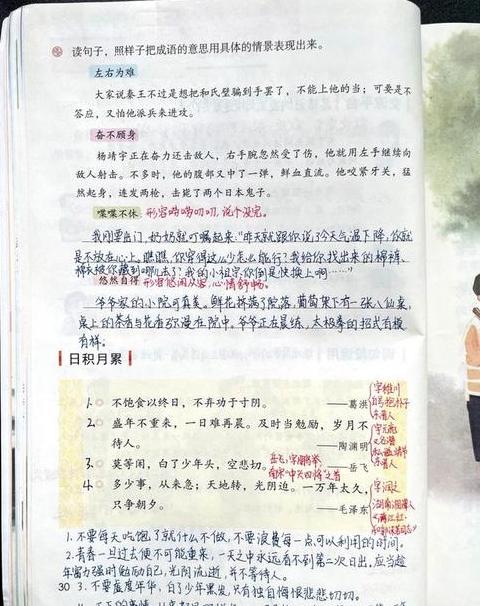 读句子，照样子把成语的意思用具体的情景表现出来。
左右为难
大家说秦王不过是想把和氏璧骗到手罢了，不能上他的当；可要是不
答应，又怕他派兵来进攻。
奋不顾身
杨靖宇正在奋力还击敌人，右手腕忽然受了伤，他就用左手继续向
敌人射击。不多时，他的腹部又中了一弹，鲜血直流。他咬紧牙关，猛
然起身，连发两枪，击毙了两个日本鬼子。
喋喋不休 形容唠唠叨叨，说个没完。
我刚要出门，奶奶就叮嘱起来：“昨天就跟你说了今天气温下降，你就
是不放在心上。瞧瞧，你穿得这么少怎么能行？我给你找出来的棉裤、
棉袄被你藏到哪儿去了？我的小祖宗，你倒是快换上啊……”
悠然自得 形容悠闲从容，心情舒畅。
爷爷家的小院可真美。鲜花挤满了院落，葡萄架下有一张八仙桌，
桌上的茶香与花香弥漫在院中。爷爷正在晨练，太极拳的招式有模
有样。
日积月累
1. 不饱食以终日，不弃功于寸阴。 ——葛洪 字稚川 自号抱朴子 东晋人
2. 盛年不重来，一日难再晨。及时当勉励，岁月不
待人。 ——陶渊明 字元亮 又名潜 私谥靖节 东晋人
3. 莫等闲，白了少年头，空悲切。 ——岳飞 岳飞，字鹏举， 南宋“中兴四将”之首
4. 多少事，从来急；天地转，光阴迫。一万年太久，
只争朝夕。 ——毛泽东 字润之 湖南湘潭人 《满江红·和郭沫若同志》
1. 不要每天吃饱了就什么不做，不要浪费每一点可以利用的时间。
2. 青春一旦过去便不可能重来，一天之中永远看不到第二次日出，应当趁
年富力强时勉励自己，光阴流逝，并不等待人。
3. 不要虚度年华，白了少年黑发，只有独自悔恨悲悲切切。
30